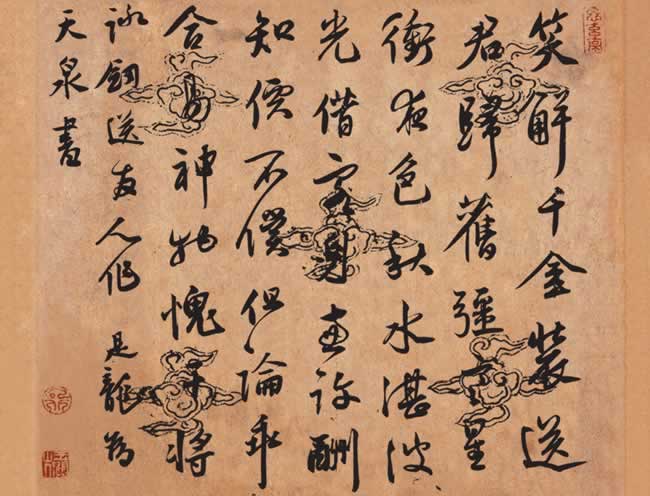 笑解千金裝送
君歸舊疆文星
衝夜色秋水湛波
光借客直許酬
知價不償但論乖
合易神物愧干將
詠劍送友人作 是龍為
天泉書